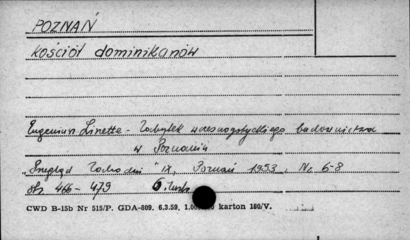 POZNAŃ
kościół dominikanów
Eugeniusz Linette - Zabytek wczesnogotyckiego budownictwa
w Poznaniu
"Przegląd Zachodni" IX, Poznań 1953, No 6-8
str. 466-479
CWD B-15b Nr 515/P. GDA-809. 6.3.59. karton 180/V.